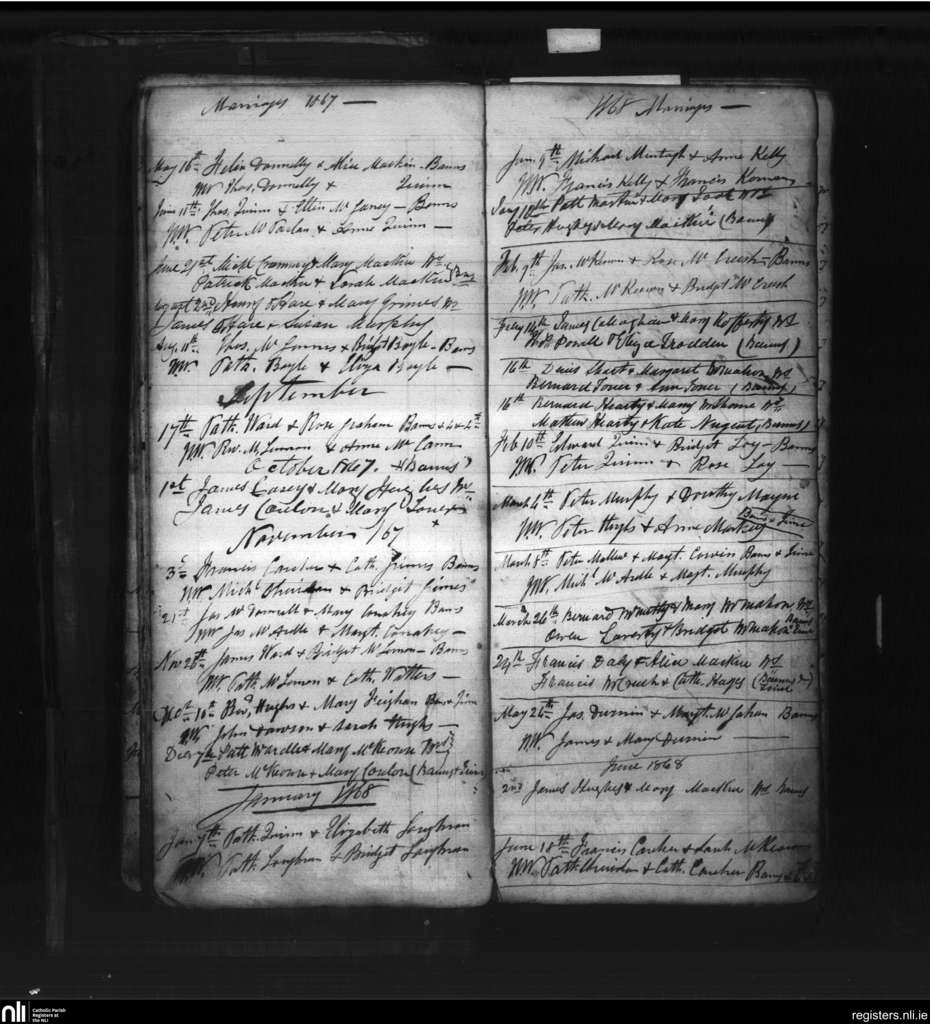 Marriages 1867 —
May 16th Helen Donnelly & Alice Mackin Banns
WW Thos. Donnelly & Quinn
June 11th Thos. Quinn & Ellen McGaney — Banns
WW. Peter McParlan & Anne Quinn —
June 21st Michl & Mary Mackin Ws
Patrick Mackin & Sarah Mackin Bns
August 2nd Henry O'Hare & Mary Grimes Ws
James O'Hare & Susan Murphy
Aug. 11th Thos. & Bridgt Boyle — Banns
WW. Patk. Boyle & Eliza Boyle —
September
17th Patk. Ward & Rose Graham Banns &
WW. Rev. M. Lennon & Anne McCann
October 1867. (Banns)
1st James Casey & Mary Hughes Ws
James Conlon & Mary Toner
November /67
3d Francis Carcher & Cath. Grimes Banns
WW Michl Sheridan & Bridgit Grimes
21st Jas McDonnell & Mary Banns
WW Jas McArdle & Margt. —
Nov 28th James Ward & Bridget McLennon — Banns
WW. Patk. McLennon & Cath. Watters —
10th Bd. Hughes & Mary Feighan Bans & Time
WW. John Dawson & Sarah Hughs —
Decr 7th Patk Wardle & Mary McKeown Ws
Peter McKeown & Mary Conlon (Banns & Time
January 1868
Jany 7th Patk. Quinn & Elizabeth Loughran
WW. Patk. Loughran & Bridget Loughran
1868 Marriages —
Jan 9th Michael Murtagh & Anne Kelly
WW. Francis Kelly & Francis Kernan
Jany 18th Patt Martin & Mary Ws
Peter Hughes & Mary Mackin (Banns)
Feb. 9th Jas. McKeown & Rose McCreesh — Banns
WW Patk. McKeown & Bridgt McCreesh
Feby 14th James Callaghan & Mary Rafferty Ws
Powell & Eliza Trodden (Banns)
16th Denis Short & Margaret McMahon Ws
Bernard Toner & Ann Toner (Banns)
16th Bernard Hearty & Mary McShane Ws
Mathew Hearty & Kate Nugent (Banns)
Feb 10th Edward Quinn & Bridget Loy — Banns
WW. Peter Quinn & Rose Loy —
March 4th Peter Murphy & Dorothy Mayne
Bans & Time
WW. Peter Hughs & Anne Markey
March 8th Peter Mallon & Margt. Corwin Banns & Time
WW. Michl McArdle & Magt. Murphy
March 26th Bernard & Mary McMahon Ws
Owen Laverty & Bridget McMahon Banns Time
29th Francis Daly & Alice Mackin Ws
Francis McCreesh & Cath. Hayes (Banns & Time
May 26th Jas. Durnin & Margt. McGahan Banns
WW. James & Mary Durnin —
June 1868
2nd James Hughes & Mary Mackin Ws Banns
June 18th Francis Carcher & Sarah McKeown
WW. Patk Sheridan & Cath. Carcher Banns &
nli
Catholic Parish
Registers at
the NLI
registers.nli.ie